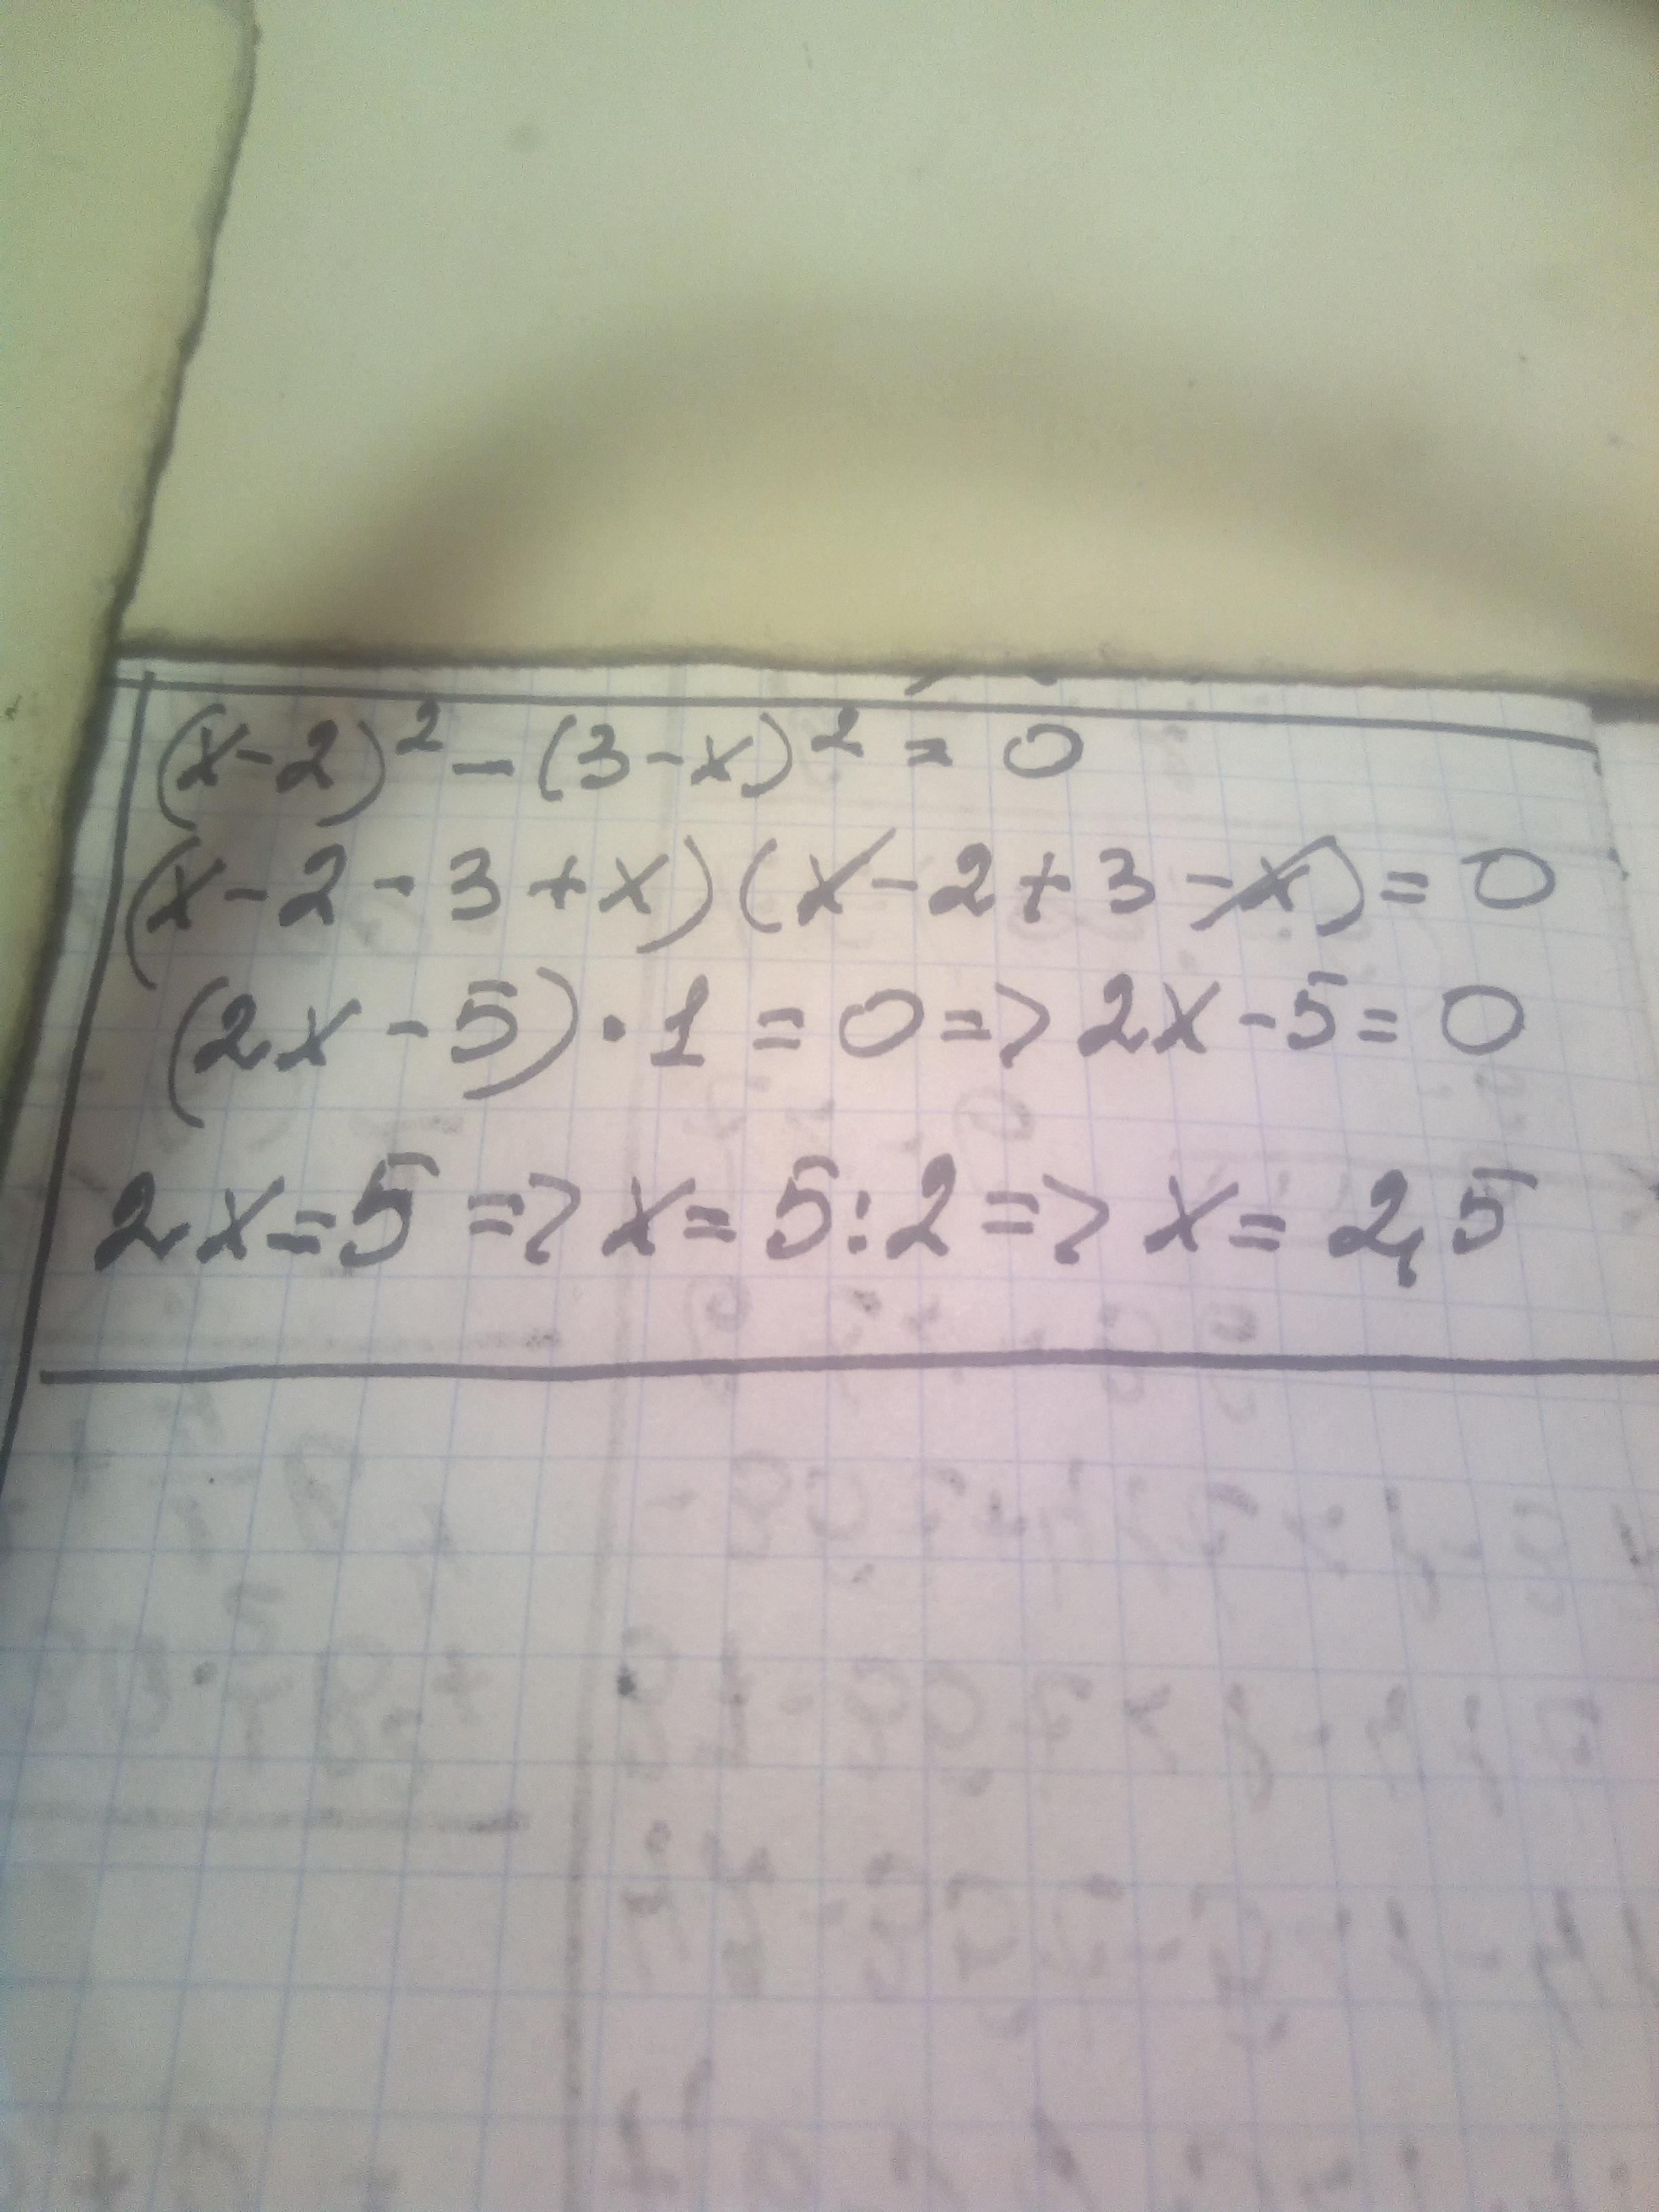 (x-2)² - (3-x)² = 0
(x-2-3+x)(x-2+3-x) = 0
(2x-5)·1 = 0 => 2x-5 = 0
2x=5 => x=5:2 => x=2,5